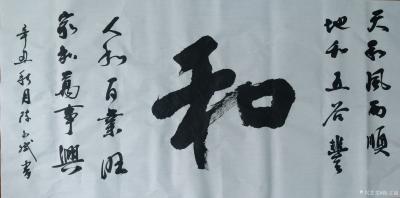 天和風雨順
地和五谷豐
和
人和百業旺
家和萬事興
辛丑秋月陈玉斌書